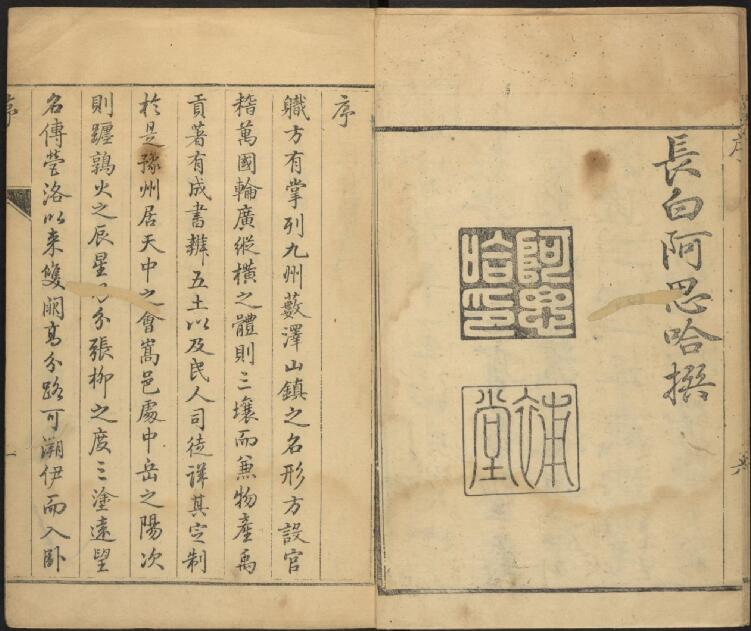 序
六
長白阿思哈撰
阿思哈印
補堂
序
職方有掌列九州藪澤山鎮之名形方設官
稽萬國輪廣縱橫之體則三壤而兼物產禹
貢著有成書辨五土以及民人司徒詳其定制
於是豫州居天中之會嵩邑處中岳之陽次
則躔鶉火之辰星分張柳之度三塗遠望
名傳營洛以来雙闕高分路可溯伊而入卧
序
一